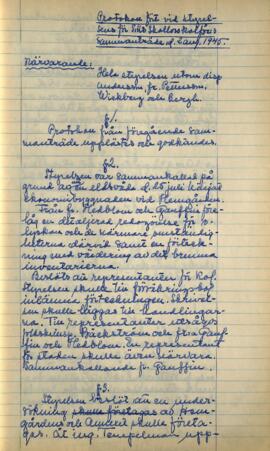 Protokoll fört vid styrel-
sens för
sammanträde d. 2 aug. 1945.
Närvarande:
Hela styrelsen utom disp.
Andersson, fr. Pettersson,
Wickberg och Bergh.
§1.
Protokoll från föregående sam-
manträde upplästes och godkändes.
§2.
Styrelsen var sammankallad på
grund av en eldsvåda d. 25 juli i
ekonomibyggnaden vid Hemgården.
Från fr. Hedblom och Gauffin före-
låg en detaljerad redogörelse för o-
lyckan och de närmare omständig-
heterna därvid samt en förteck-
ning med värdering av det brunna
inventarierna.
Beslöts att representanter för
styrelsen skulle till försäkringsbol.
inlämna förteckningen. Skrivel-
sen skulle läggas till handlingar-
na. Till representanter utsågos
folkskolinsp. Bäckström och fru Gauf-
fin och Hedblom. En representant
för staden skulle även närvara
sammankallande fr. Gauffin.
§3.
Styrelsen beslöt att en under-
sökning skulle företagas av Hem-
gårdens och Annexet skulle företa-
gas. att ing. Tempelman upp-